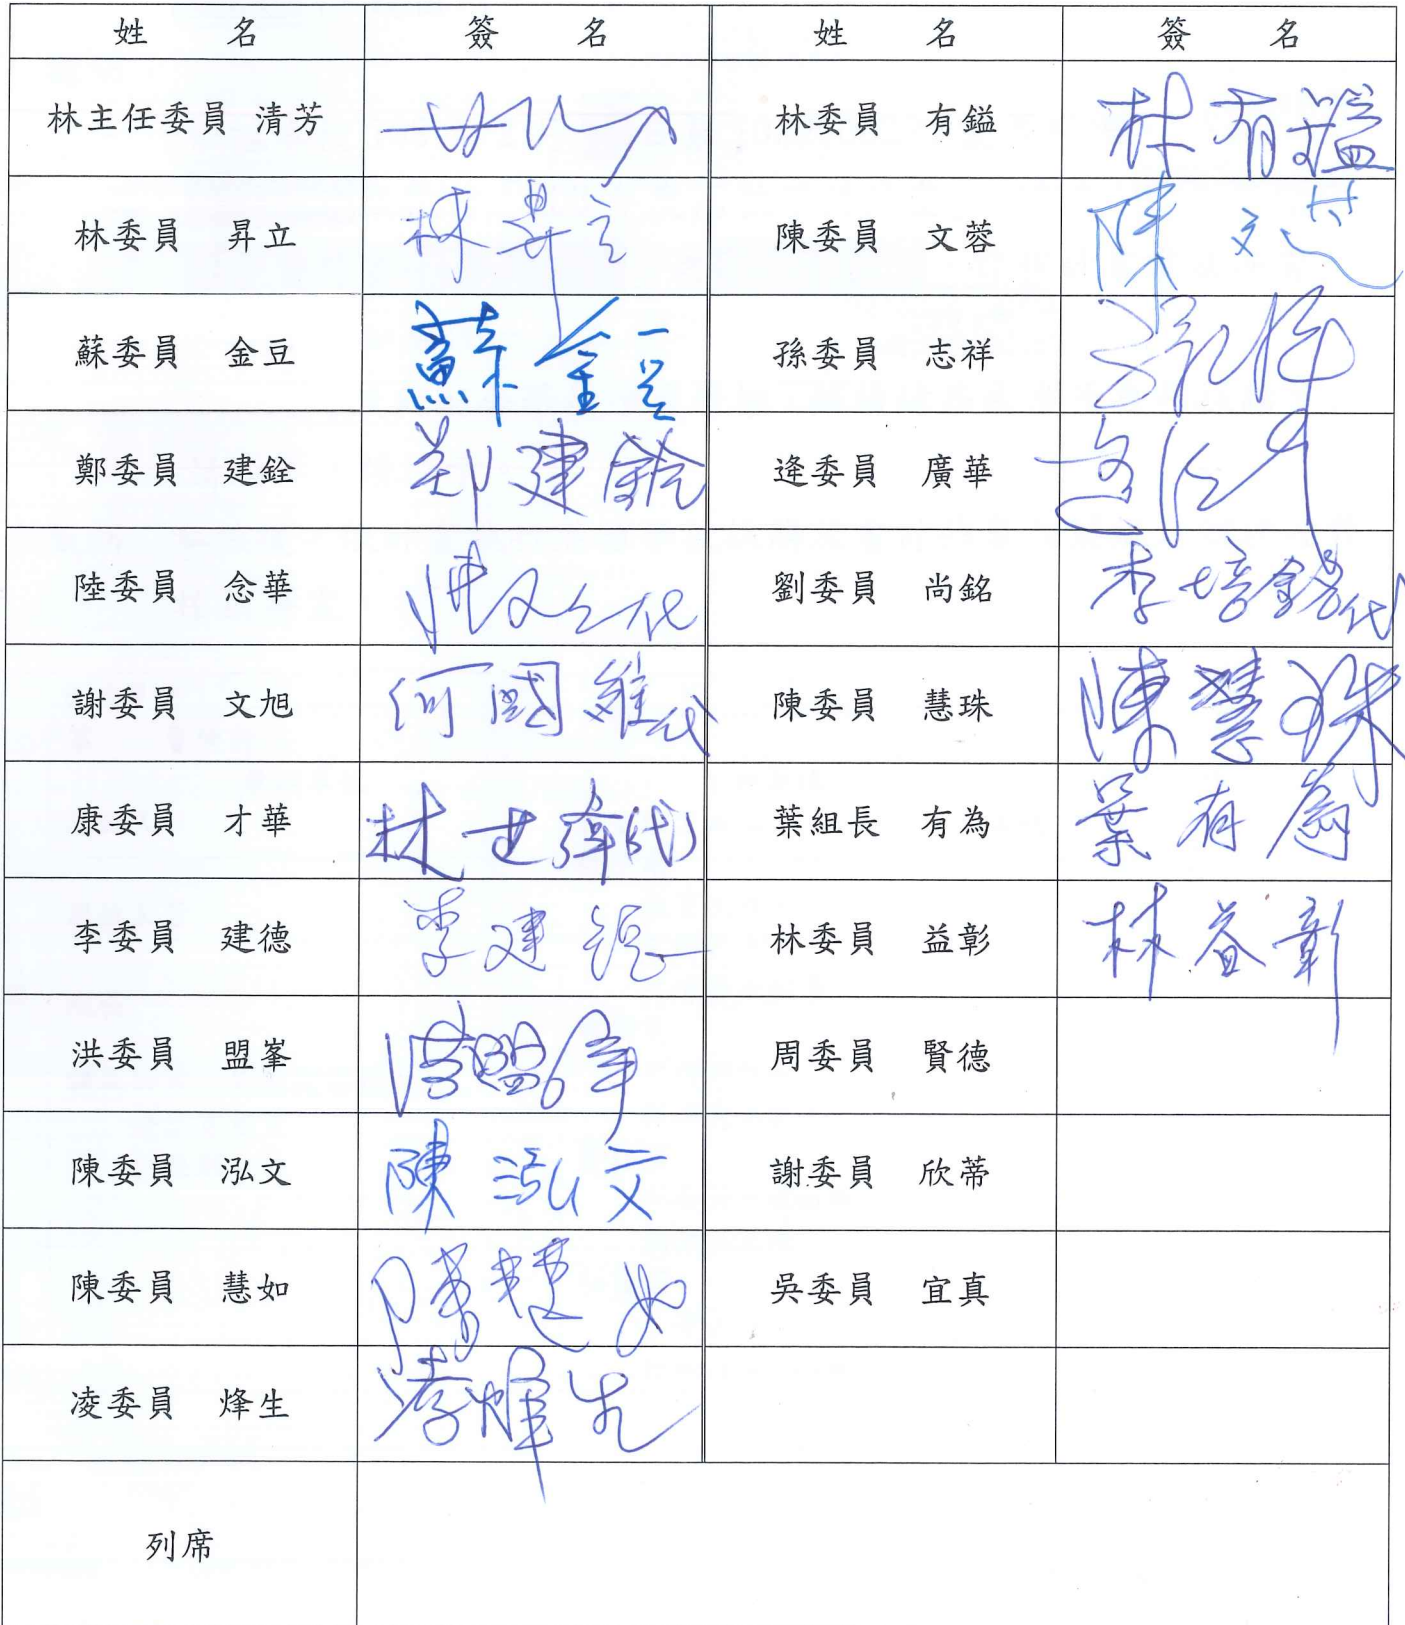 姓 名 簽 名 姓 名 簽 名
林主任委員 清芳 林委員 有鎰 林有鎰
林委員 昇立 林昇立 陳委員 文蓉 陳文蓉
蘇委員 金豆 蘇金豆 孫委員 志祥
鄭委員 建銓 鄭建銓 逄委員 廣華
陸委員 念華 代 劉委員 尚銘 李培銘代
謝委員 文旭 何國維代 陳委員 慧珠 陳慧珠
康委員 才華 林世偉代 葉組長 有為 葉有為
李委員 建德 李建德 林委員 益彰 林益彰
洪委員 盟峯 洪盟峯 周委員 賢德
陳委員 泓文 陳泓文 謝委員 欣蒂
陳委員 慧如 陳慧如 吳委員 宜真
凌委員 烽生 凌烽生
列席